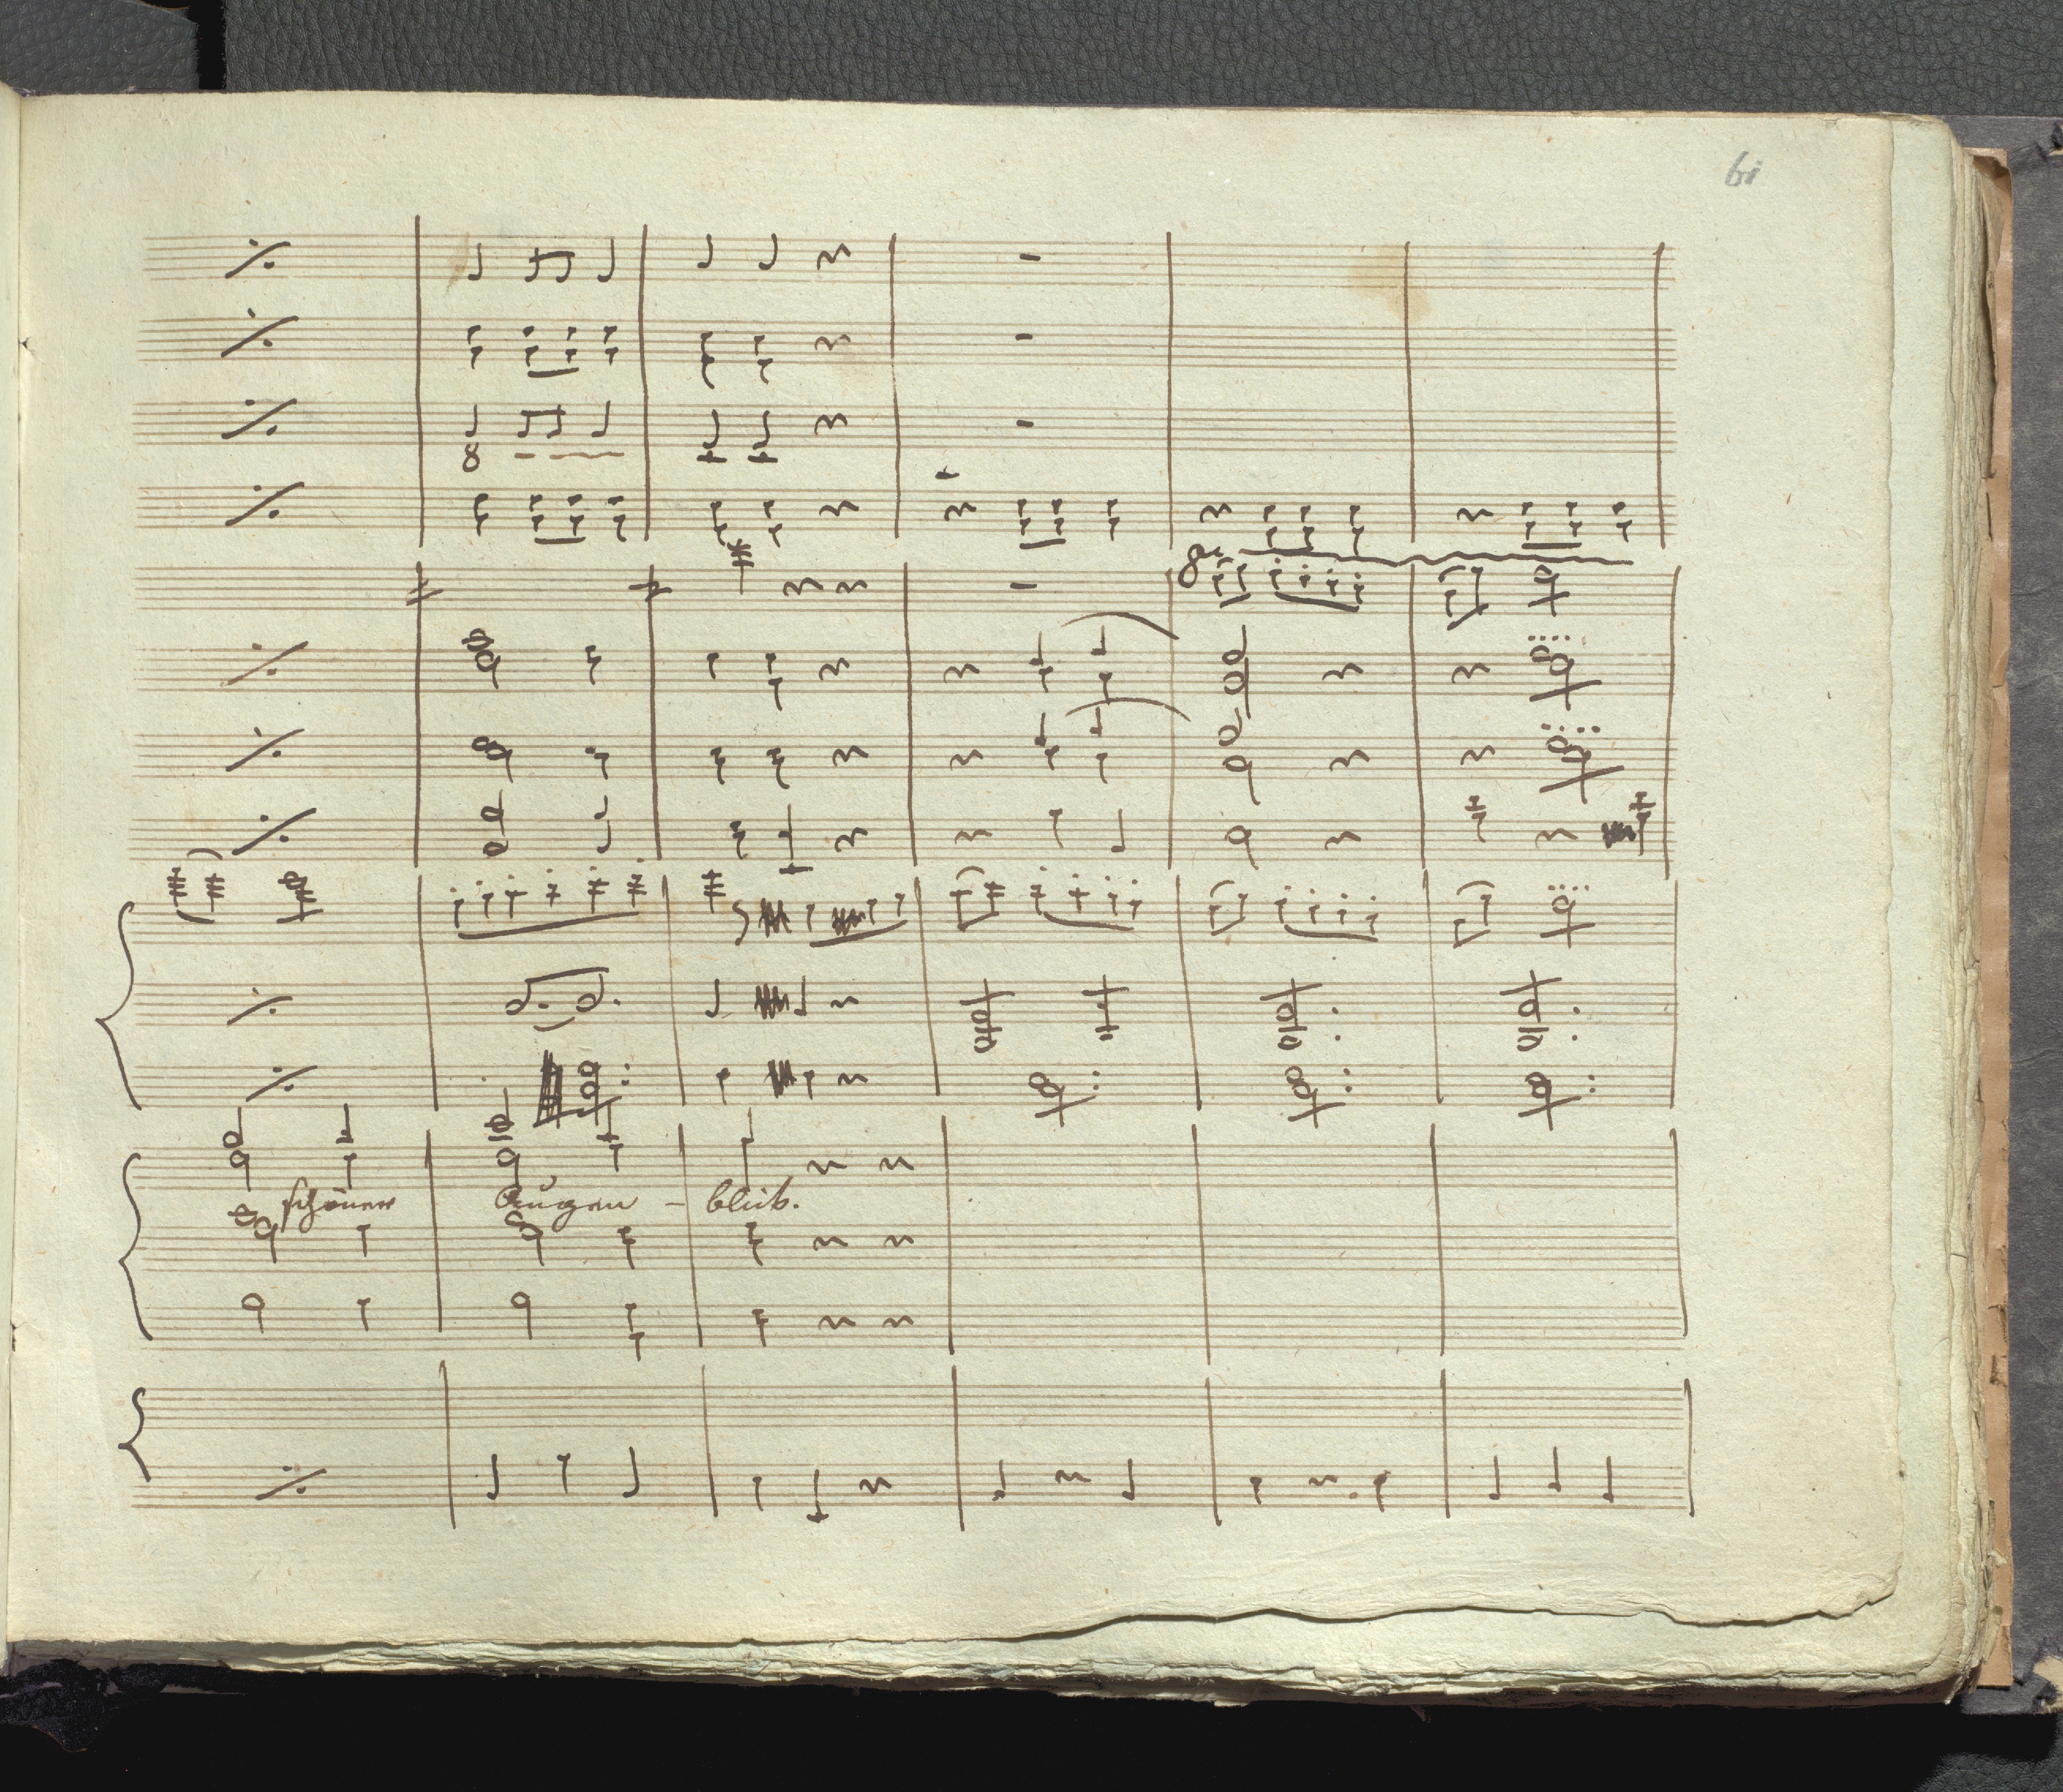 61
8
8va
schönen Augen - blick.